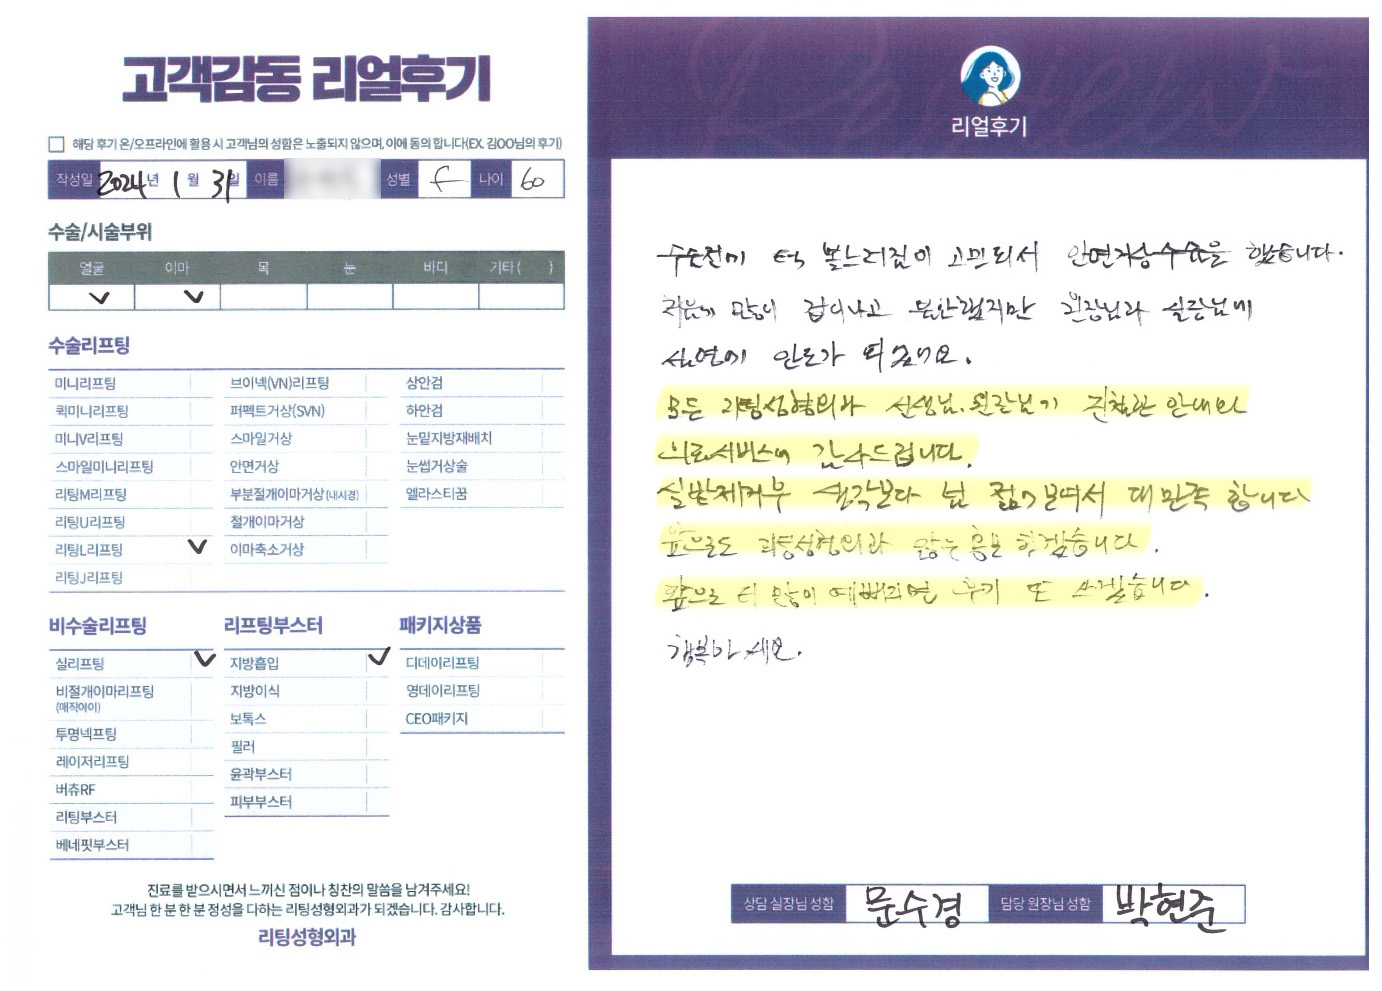 고객감동 리얼후기
해당 후기 온/오프라인에 활용 시 고객님의 성함은 노출되지 않으며, 이에 동의 합니다(EX. 김OO님의 후기)
작성일 2024년 1월 31일 이름 성별 f 나이 60
수술/시술부위
얼굴 이마 목 눈 바디 기타( )
수술리프팅
미니리프팅
퀵미니리프팅
미니V리프팅
스마일미니리프팅
리팅M리프팅
리팅U리프팅
리팅L리프팅
리팅J리프팅
브이넥(VN)리프팅
퍼펙트거상(SVN)
스마일거상
안면거상
부분절개이마거상(내시경)
절개이마거상
이마축소거상
상안검
하안검
눈밑지방재배치
눈썹거상술
엘라스티꿈
비수술리프팅
실리프팅
비절개이마리프팅
(매직아이)
투명넥프팅
레이저리프팅
버츄RF
리팅부스터
베네핏부스터
리프팅부스터
지방흡입
지방이식
보톡스
필러
윤곽부스터
피부부스터
패키지상품
디데이리프팅
명데이리프팅
CEO패키지
진료를 받으시면서 느끼신 점이나 칭찬의 말씀을 남겨주세요!
고객님 한 분 한 분 정성을 다하는 리팅성형외과가 되겠습니다. 감사합니다.
리팅성형외과
Review
리얼후기
수술전에 턱 볼느러짐이 고민되서 안면거상수술을 했습니다.
처음에 많이 겁이나고 불안했지만 원장님과 실장님에
설명에 안도가 되었네요.
모든 리팅성형외과 선생님. 원장님기 친절한 안내와
의료서비스에 감사드립니다.
실밥제거후 생각보다 넘 젊어보여서 대만족 합니다
앞으로도 리팅성형외과 많는 홍보 하겠습니다.
앞으로 더 많이 예뻐지면 후기 또 쓰겠습니다.
행복하세요.
상담 실장님 성함 문수경 담당 원장님 성함 박현준